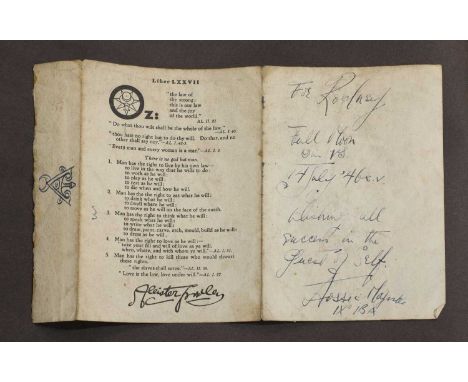 Liber LXXVII
Oz:
"the law of
the strong:
this is our law
and the joy
of the world."
AL. II. 21
"Do what thou wilt shall be the whole of the law."
—AL. I. 40.
"thou hast no right but to do thy will. Do that, and no
other shall say nay."—AL. I. 42-3.
"Every man and every woman is a star."—AL. I. 3.
There is no god but man.
1. Man has the right to live by his own law—
to live in the way that he wills to do:
to work as he will:
to play as he will:
to rest as he will:
to die when and how he will.
2. Man has the right to eat what he will:
to drink what he will:
to dwell where he will:
to move as he will on the face of the earth.
3. Man has the right to think what he will:
to speak what he will:
to write what he will:
to draw, paint, carve, etch, mould, build as he will:
to dress as he will.
4. Man has the right to love as he will:—
"take your fill and will of love as ye will,
when, where, and with whom ye will."—AL. I. 51.
5. Man has the right to kill those who would thwart
these rights.
"the slaves shall serve."—AL. II. 58.
"Love is the law, love under will."—AL. I. 57.
Aleister Crowley
For Rodney
Full Moon
all
success in the
Quest of Self